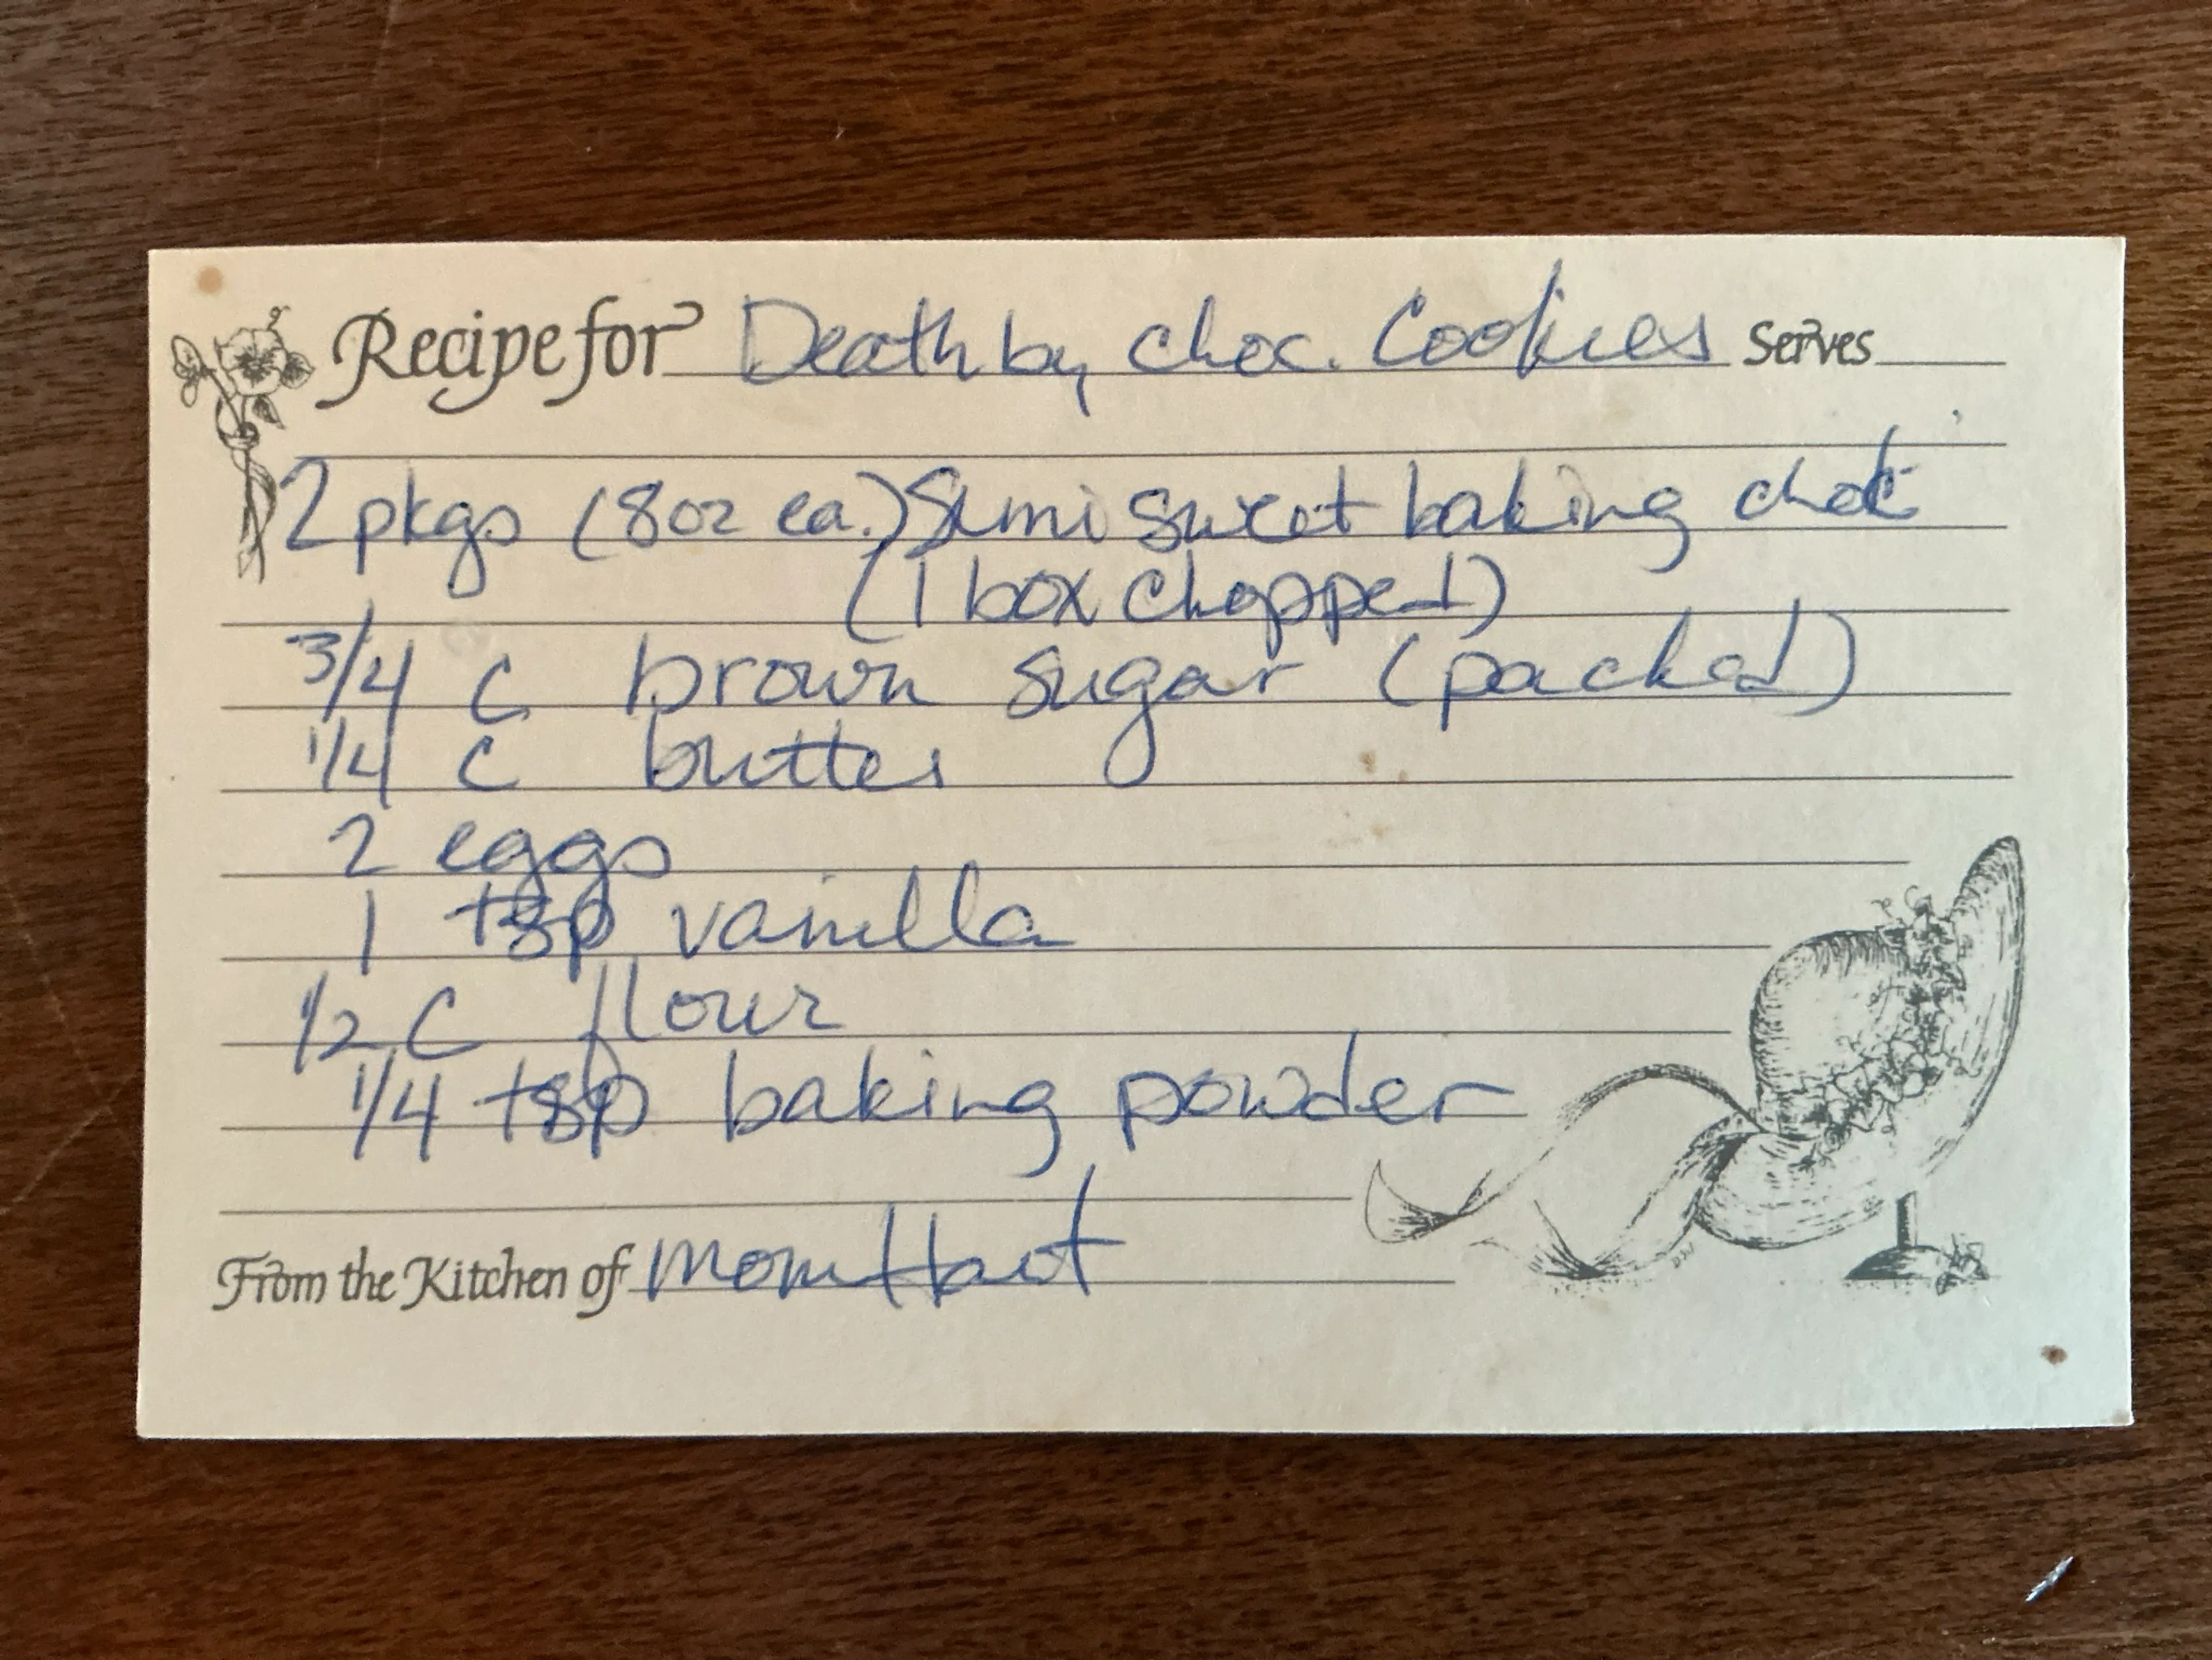 Recipe for Death by choc. Cookies Serves
2 pkgs (8oz ea.) Semi sweet baking choc
(1 box chopped)
3/4 C brown sugar (packed)
1/4 C butter
2 eggs
1 tsp vanilla
1/2 C flour
1/4 tsp baking powder
From the Kitchen of Mom Hart